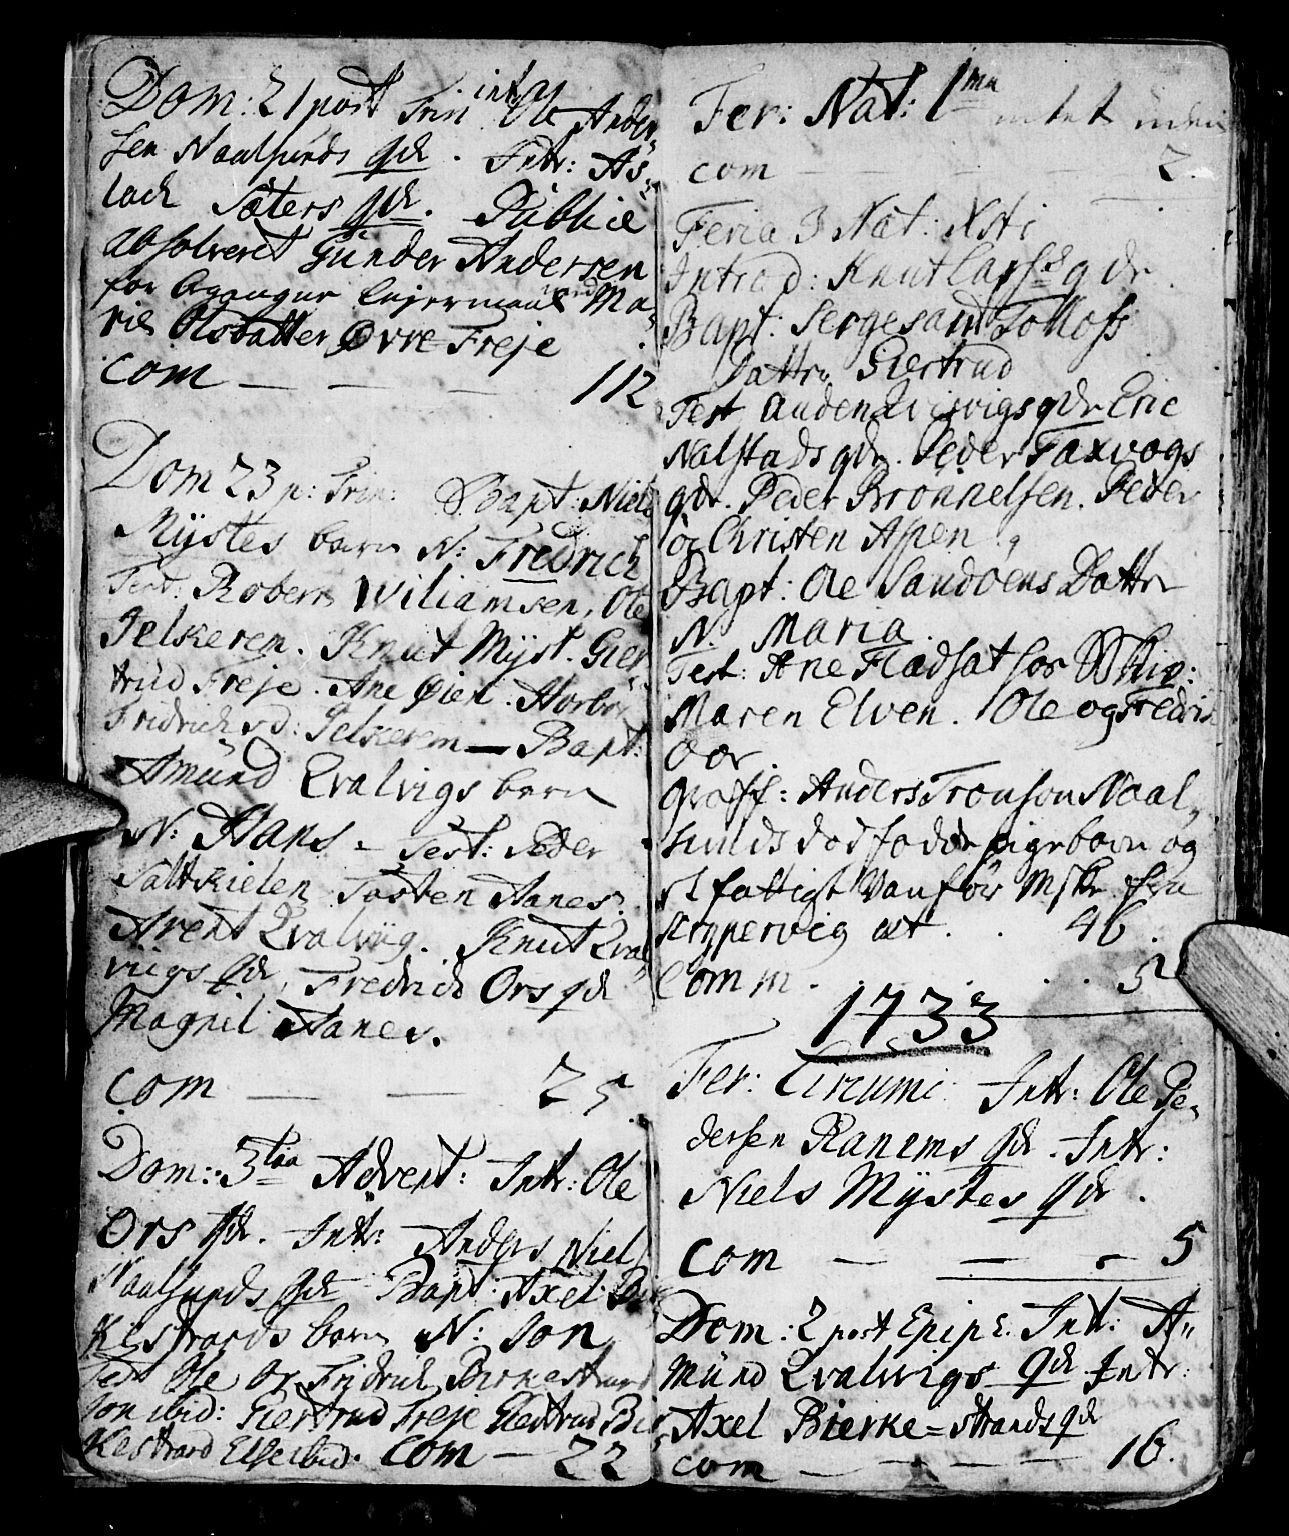 Dom: 21 post Trin Intr Ole Ander„
sen Naalsunds qdr. Intr: As„
lach Sæters qdr. Publicè
absolveret Gunder Andersen
for begangne leyermaal med Ma„
rie Olsdatter Øvre Freje
Com — — — 112
Dom 23 p: Trin: Bapt: Niels
Mÿstes barn N: Fredrich
Test: Robert Wiliamsen, Ole
Jelkerem. Knut Myst. Gier„
trud Freje. Ane Øien.
Fridrichsd: Jelkerem — Bapt:
Amünd Qvalvigs barn
N: Hans - Test: Peder
Saltkielen Tosten Aanes.
Arent Qvalvüg. Knut Qval„
viigs qdr, Fredrich Ors qdr
Magnil Aanes.
Com — — 25
Dom: 3tia Advent: Intr: Ole
Ors qdr. Intr: Anders Niels
Naalsunds qdr Bapt: Axel Bir
Kestrands barn N: Jon
Test Ole Or Fridrich Birkestrand
Jon ibid: Giertrud Freje Giertrud Bir
Kestrand Else ibid. Com — 22
Fer: Nat: 1ma intet uden
com — — — 2.
Feria 3 Nat: Xsti
Introd: Knut Larss: qdr.
Bapt: Serge sand Tollofs
Dattr. Giertrud
Test Auden Qvisvigs qdr Eric
Nalstads qdr. Peder Faxvogs
qdr. Peder Bronnelsen. Peder
og Christen Aspen.
Bapt: Ole Sandøens Dattr
N. Maria.
Test: Ane Fladsat
Maren Elven. Ole og Fredric
Oor.
Graff: Anders Tronson Naal„
sunds dødfødde pigebarn og
et fattigt Vanfør Mske fra
Kryperviig æt. . 46.
Comm. . . . 5
1733
Fer: Circumc: Intr: Ole Pe„
dersen Ranems qdr. Intr:
Niels Mÿstes qdr.
Com — — - 5
Dom: 2 post Epiph. Intr: A„
münd Qvalvigs qdr Intr:
Axel Bierke=strands qdr
com — - — — 16.